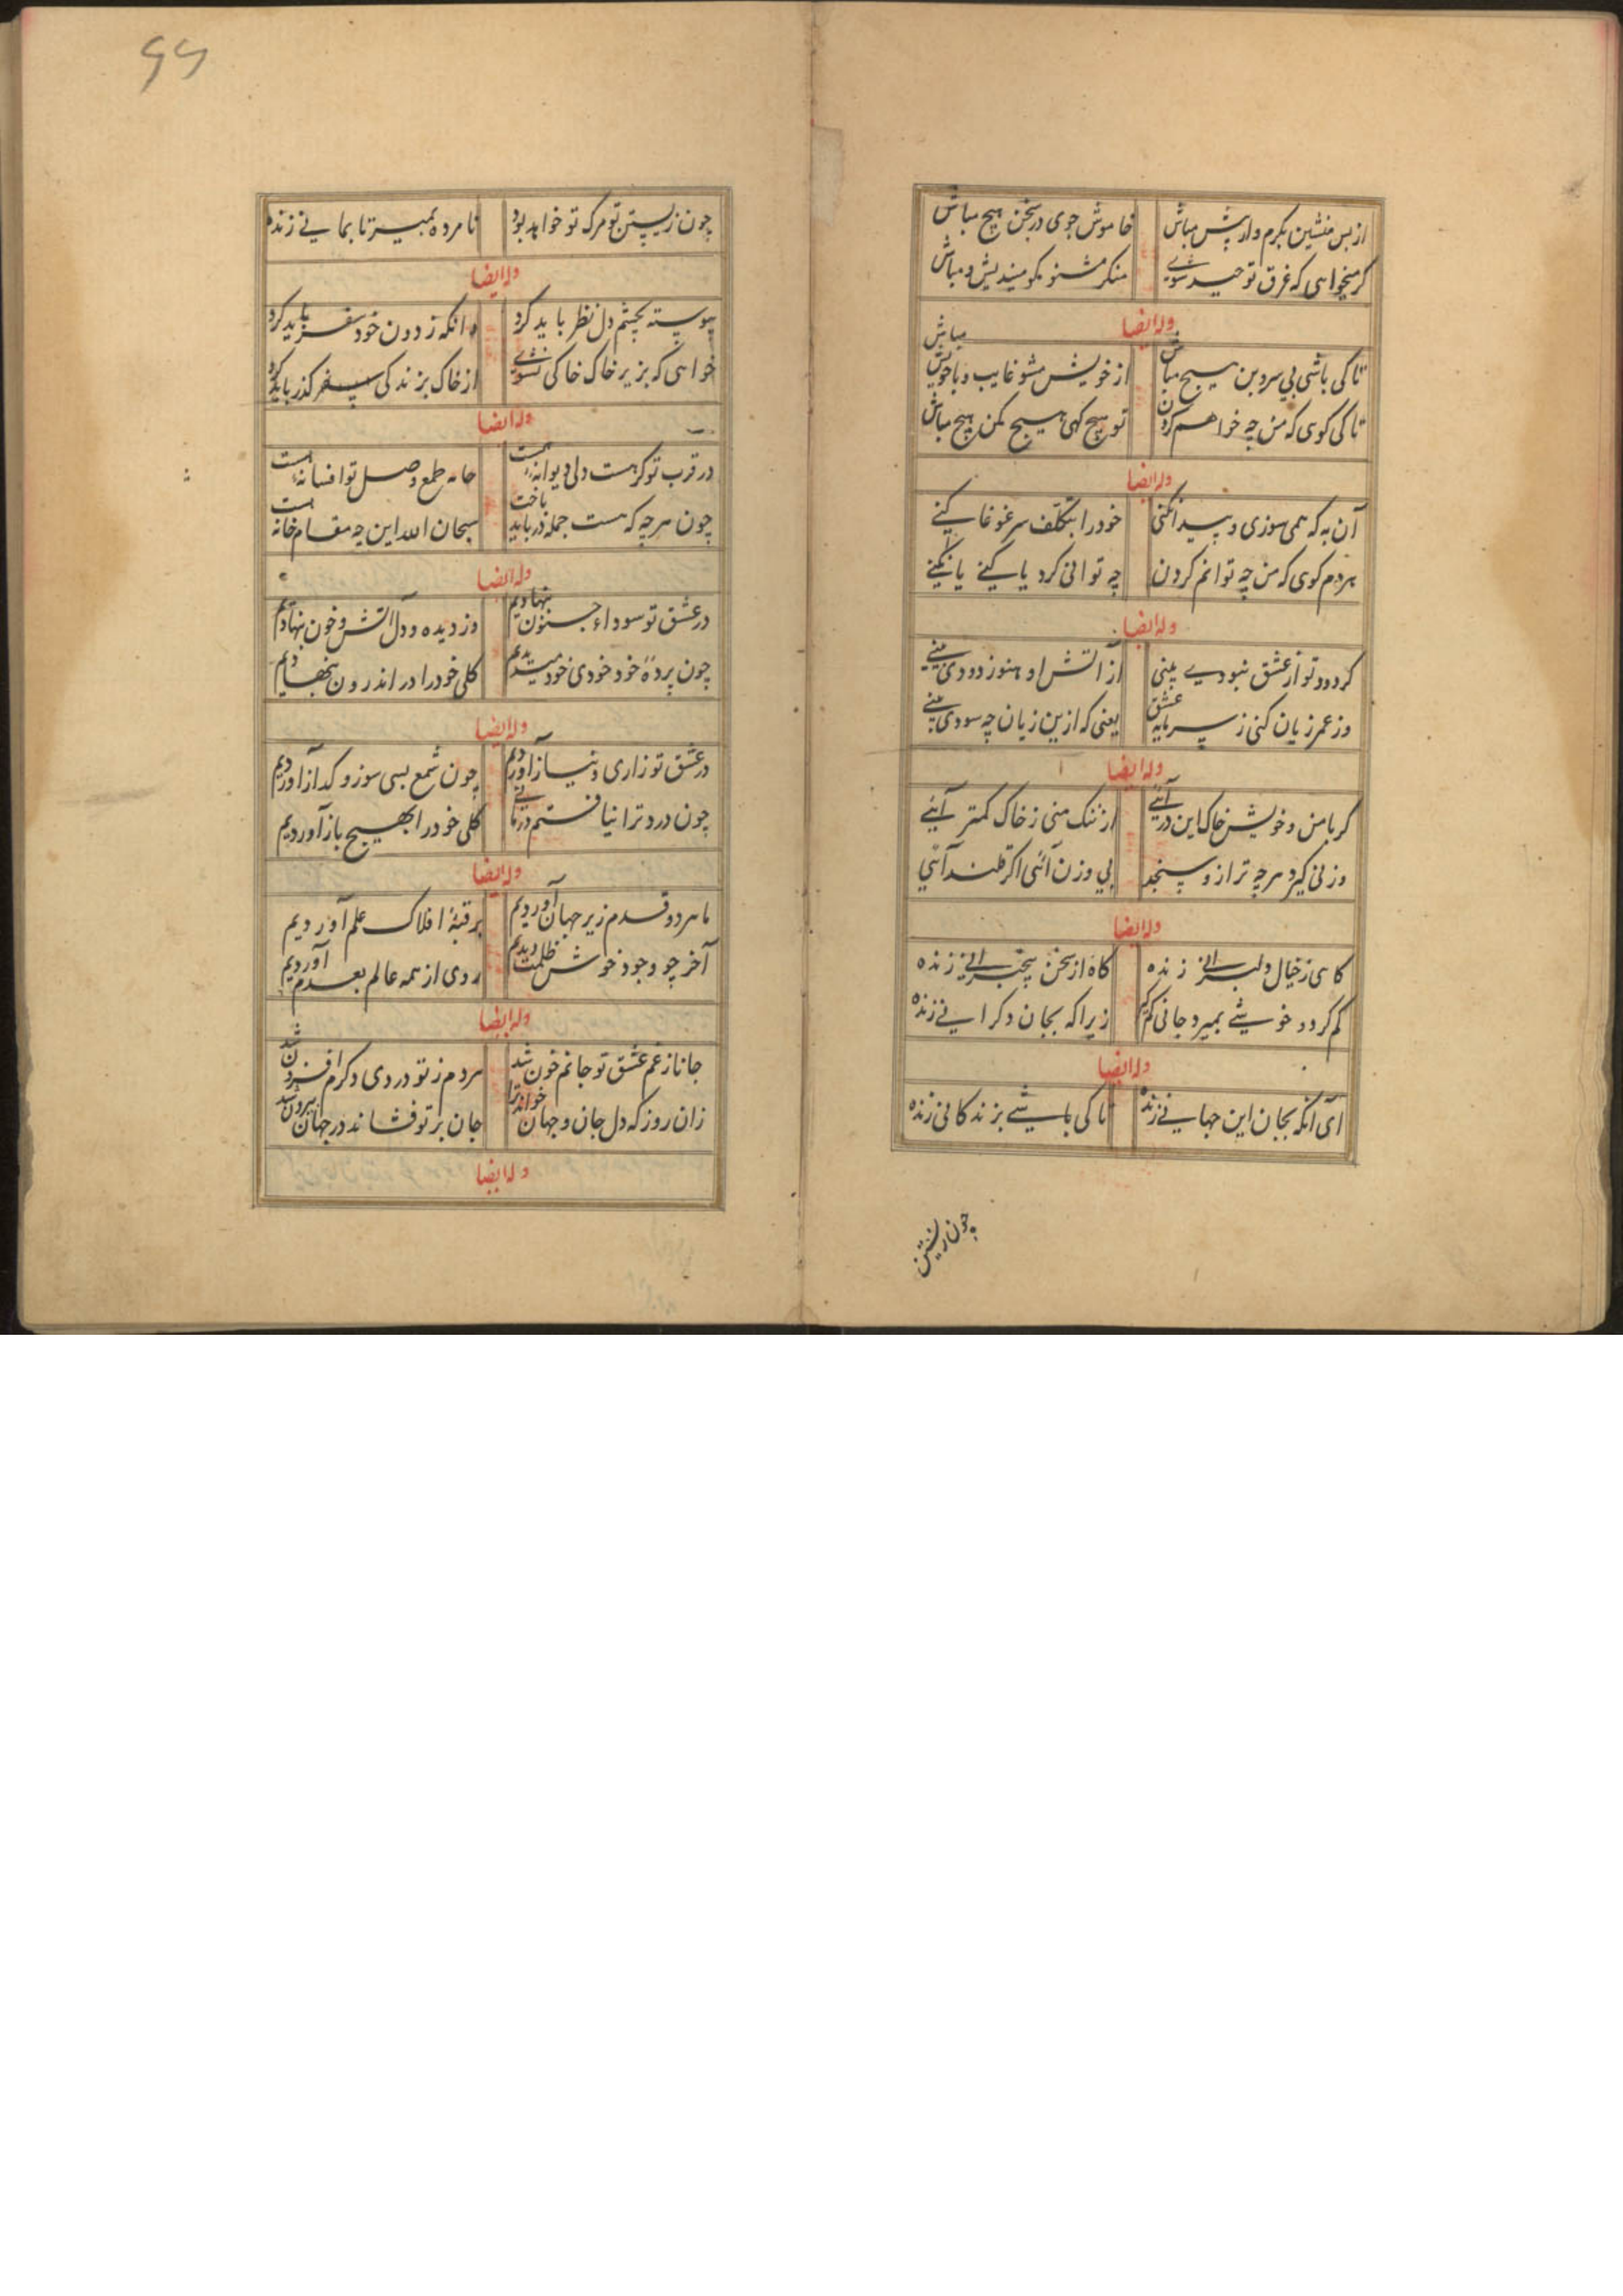 از پس منشین یکدم و از پیش مباش خاموش جوی در سخن هیچ مباش
کر میخواهی که غرق توحید شوی منکر مشنو مکو میندیش و مباش
وله ایضا
تا کی باشی بی سر و بن هیچ مباش از خویش مشو غایب و با خویش مباش
تا کی کوی که من چه خواهم کردن تو هیچ کهی هیچ مکن هیچ مباش
وله ایضا
آن به که همی سوزی و پیدا نکنی خود را بتکلف سر غوغا نکنی
هر دم کوی که من چه توانم کردن چه توانی کرد یا کنی یا نکنی
وله ایضا
کر دود تو از عشق نبودی بینی از آتش او هنوز دودی بینی
وز عمر زیان کنی ز سرمایه عشق یعنی که ازین زیان چه سودی بینی
وله ایضا
کر با من و خویش خاک این در آیی از ننک منی ز خاک کمتر آیی
وزنی کیرد هرچه ترازو سنجد بی وزن آئی اکر قلندر آئی
وله ایضا
کاهی ز خیال دلبرانی زنده کاه از سخن بیخبرانی زنده
کم کردد خوشی بمیرد جانی کم کیر زیرا که بجان دکرانی زنده
وله ایضا
آی آنکه بجان این جهانی زنده تا کی باشی بزندکانی زنده
چون زیستن
۶۶
چون زیستن تو مرک تو خواهد بود نامرده بمیر تا بمانی زنده
وله ایضا
پیوسته بچشم دل نظر باید کرد وانکه ز درون خود سفر باید کرد
خواهی که بزیر خاک خاکی نشوی از خاک بزندکی گذر باید کرد
وله ایضا
در قرب تو کر هست دلی دیوانه است جانه طمع وصل تو افسانه است
چون هرچه که هست جمله در باید باخت سبحان الله این چه مقام خانه است
وله ایضا
در عشق تو سوداء جنون بنهادیم وز دیده و دل آتش و خون بنهادیم
چون پردهٔ خود خودی خود میدیدیم کلی خود را در اندرون بنهادیم
وله ایضا
در عشق تو زاری و نیاز آوردیم چون شمع بسی سوز و کداز آوردیم
چون درد ترا نیافتم درمانی کلی خود را بهیچ باز آوردیم
وله ایضا
ما هر دو قدم زیر جهان آوردیم بر قبهٔ افلاک علم آوردیم
آخر چو وجود خوش ظلمت دیدیم روی از همه عالم بعدم آوردیم
وله ایضا
جانا ز غم عشق تو جانم خون شد هر دم ز تو دردی دکرم افزون شد
زان روز که دل جان و جهان خواند ترا جان بر تو فشاند در جهان بیرون شد
وله ایضا